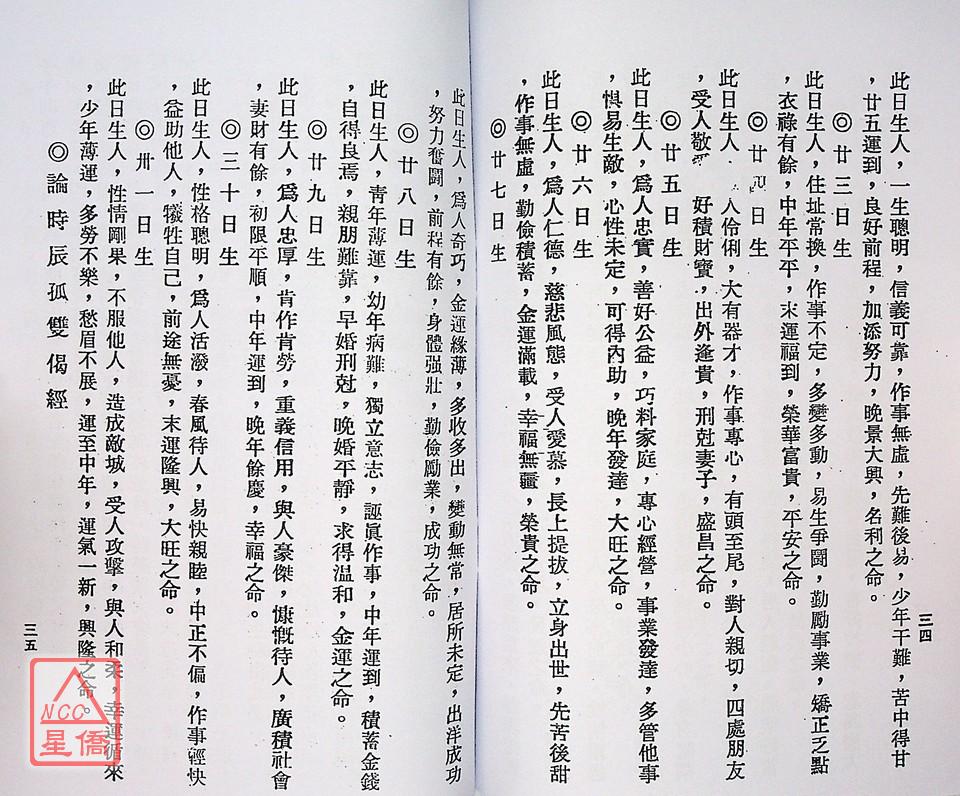 此日生人，一生聰明，信義可靠，作事無虛，先難後易，少年干難，苦中得甘
，廿五運到，良好前程，加添努力，晚景大興，名利之命。
◎廿三日生
此日生人，住址常換，作事不定，多變多動，易生爭鬪，勤勵事業，矯正之點
，衣祿有餘，中年平平，末運福到，榮華富貴，平安之命。
◎廿 日生
此日生人 人伶俐，大有器才，作事專心，有頭至尾，對人親切，四處朋友
，受人敬 好積財寶，出外逢貴，刑尅妻子，盛昌之命。
◎廿五日生
此日生人，爲人忠實，善好公益，巧料家庭，專心經營，事業發達，多管他事
，惧易生敵，心性未定，可得內助，晚年發達，大旺之命。
◎廿六日生
此日生人，爲人仁德，慈悲風態，受人愛慕，長上提拔，立身出世，先苦後甜
，作事無虛，勤儉積蓄，金運滿載，幸福無疆，榮貴之命。
◎廿七日生
三四
此日生人，爲人奇巧，金運緣薄，多收多出，變動無常，居所未定，出洋成功
，努力奮鬪，前程有餘，身體强壯，勤儉勵業，成功之命。
◎廿八日生
此日生人，靑年薄運，幼年病難，獨立意志，認眞作事，中年運到，積蓄金錢
，自得良焉，親朋難靠，早婚刑尅，晚婚平靜，求得温和，金運之命。
◎廿九日生
此日生人，爲人忠厚，肯作肯勞，重義信用，與人豪傑，慷慨待人，廣積社會
，妻財有餘，初限平順，中年運到，晚年餘慶，幸福之命。
◎三十日生
此日生人，性格聰明，爲人活潑，春風待人，易快親睦，中正不偏，作事輕快
，益助他人，犧牲自己，前途無憂，末運隆興，大旺之命。
◎卅一日生
此日生人，性情剛果，不服他人，造成敵城，受人攻擊，與人和柔，幸運循來
，少年薄運，多勞不樂，愁眉不展，運至中年，運氣一新，興隆之命。
◎論時辰孤雙偈經
三五
NCC
星僑